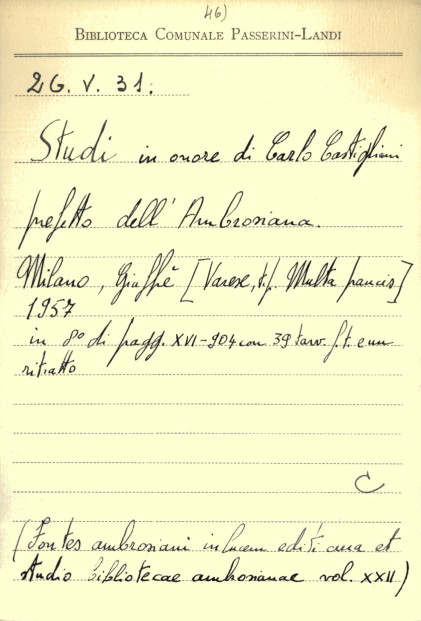 46)
BIBLIOTECA COMUNALE PASSERINI-LANDI
2G. V. 31.
Studi in onore di Carlo Castiglioni
prefetto dell'Ambrosiana.
Milano, Giuffrè [Varese, tip. Multa paucis]
1957
in 8° di pagg. XVI-904 con 39 tavv. f. t. e un
ritratto
C
(Fontes ambrosiani in lucem editi cura et
studio bibliotecae ambrosianae vol. XXII)